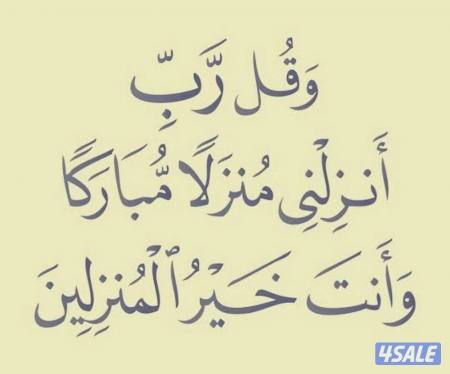 وَقُل رَّبِّ
أَنزِلْنِي مُنزَلًا مُّبَارَكًا
وَأَنتَ خَيْرُ ٱلْمُنزِلِينَ
4SALE